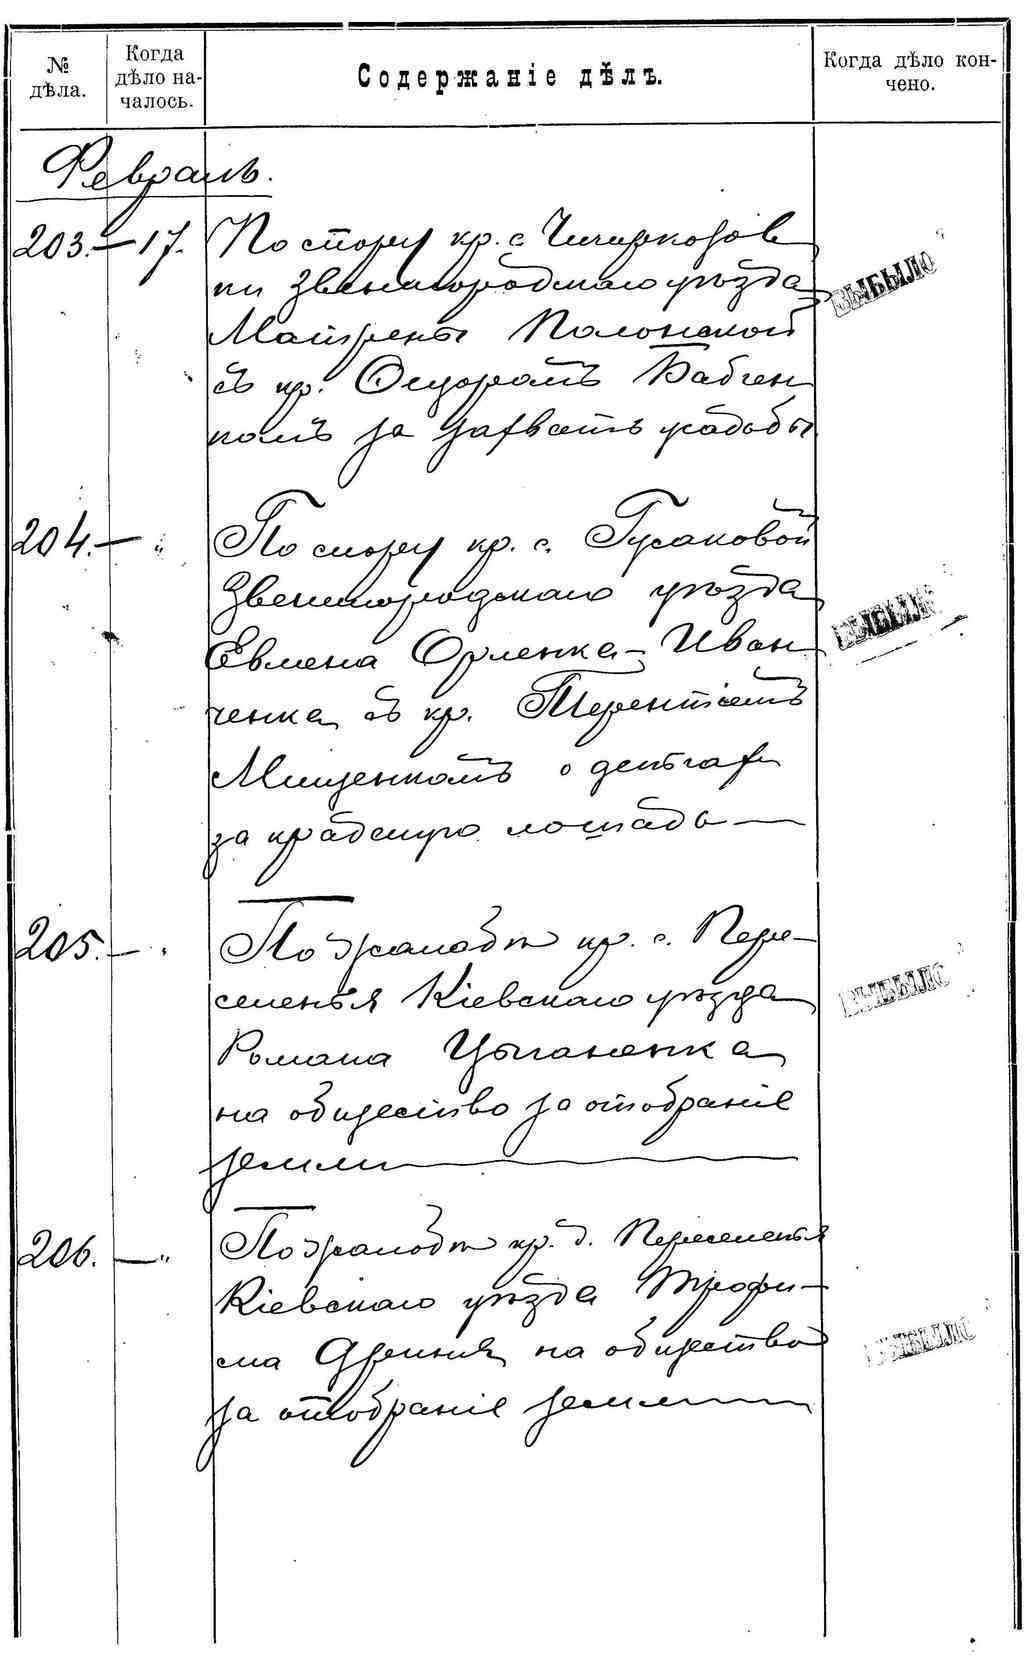 № дѣла.
Когда дѣло на-
чалось.
Содержаніе дѣлъ.
Когда дѣло кон-
чено.
Февраль.
203. — 17. По спору кр. с. Чичиркозов
ки Звенигородскаго уѣзда
Матрены Полонской
съ кр. Ѳедоромъ Бабчен
комъ за захватъ усадьбы
ВЫБЫЛО
204. — " По спору кр. с. Гусаковой
Звенигородскаго уѣзда
Евмена Орленка-Иван
ченка съ кр. Терентіемъ
Мищенкомъ о деньгах
за краденую лошадь —
ВЫБЫЛО
205. — " По жалобѣ кр. с. Пере-
селенья Кіевскаго уѣзда
Романа Цыганенка
на общество за отобраніе
земли
ВЫБЫЛО
206. — " По жалобѣ кр. д. Переселенья
Кіевскаго уѣзда Трофи-
ма на общество
за отобраніе земли
ВЫБЫЛО